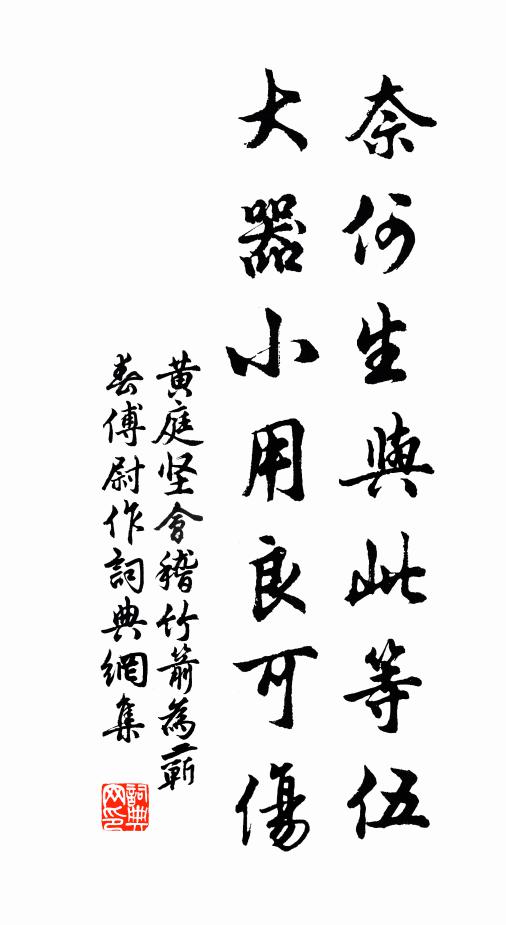 奈何生與此等伍
大器小用良可傷
黄庭坚會稽竹箭為蘄
春傅尉作詞典網集
詞典网印